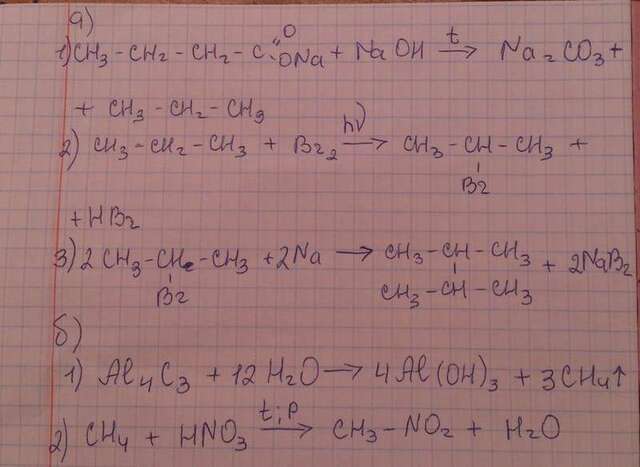 а)
1) CH₃ - CH₂ - CH₂ - C O ONa + NaOH t → Na₂CO₃ +
+ CH₃ - CH₂ - CH₃
2) CH₃ - CH₂ - CH₃ + Br₂ hν → CH₃ - CH - CH₃ +
Br
+ HBr
3) 2 CH₃ - CH - CH₃ + 2Na → CH₃ - CH - CH₃ + 2NaBr
Br CH₃ - CH - CH₃
б)
1) Al₄C₃ + 12H₂O → 4Al(OH)₃ + 3CH₄↑
2) CH₄ + HNO₃ t; P → CH₃ - NO₂ + H₂O